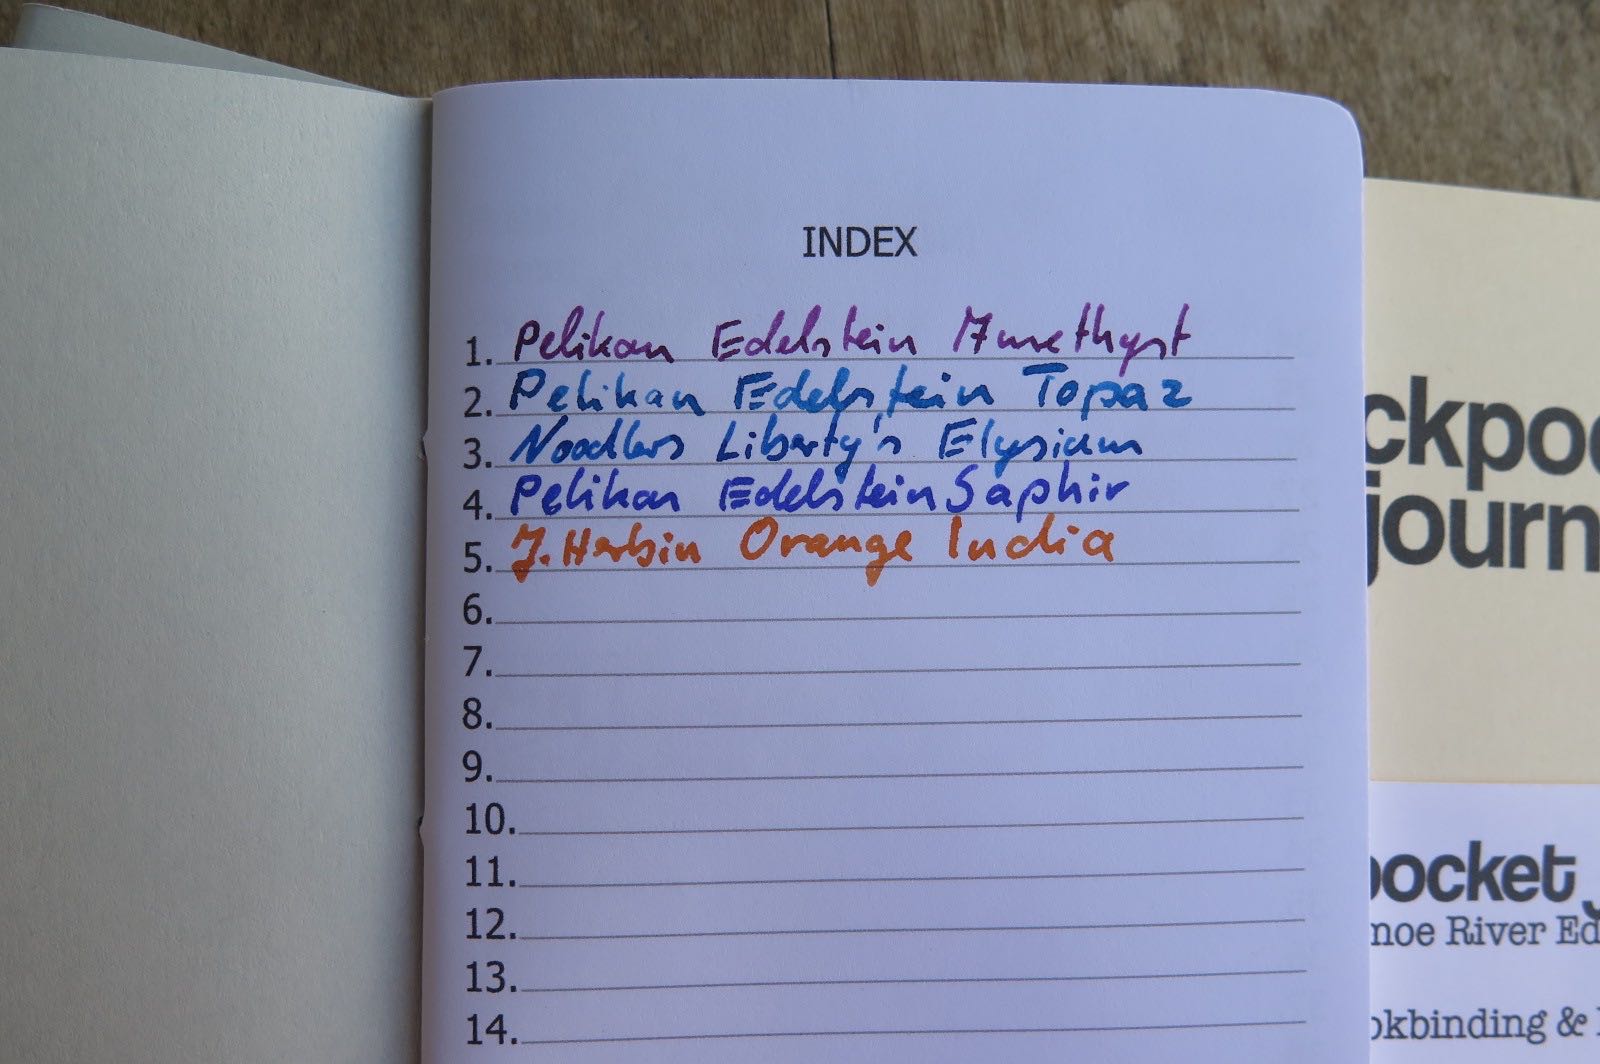 INDEX
1. Pelikan Edelstein Amethyst
2. Pelikan Edelstein Topaz
3. Noodlers Liberty's Elysium
4. Pelikan Edelstein Saphir
5. J. Herbin Orange India
6.
7.
8.
9.
10.
11.
12.
13.
14.
ckpoc
journ
pocket j
moe River Ed
okbinding &